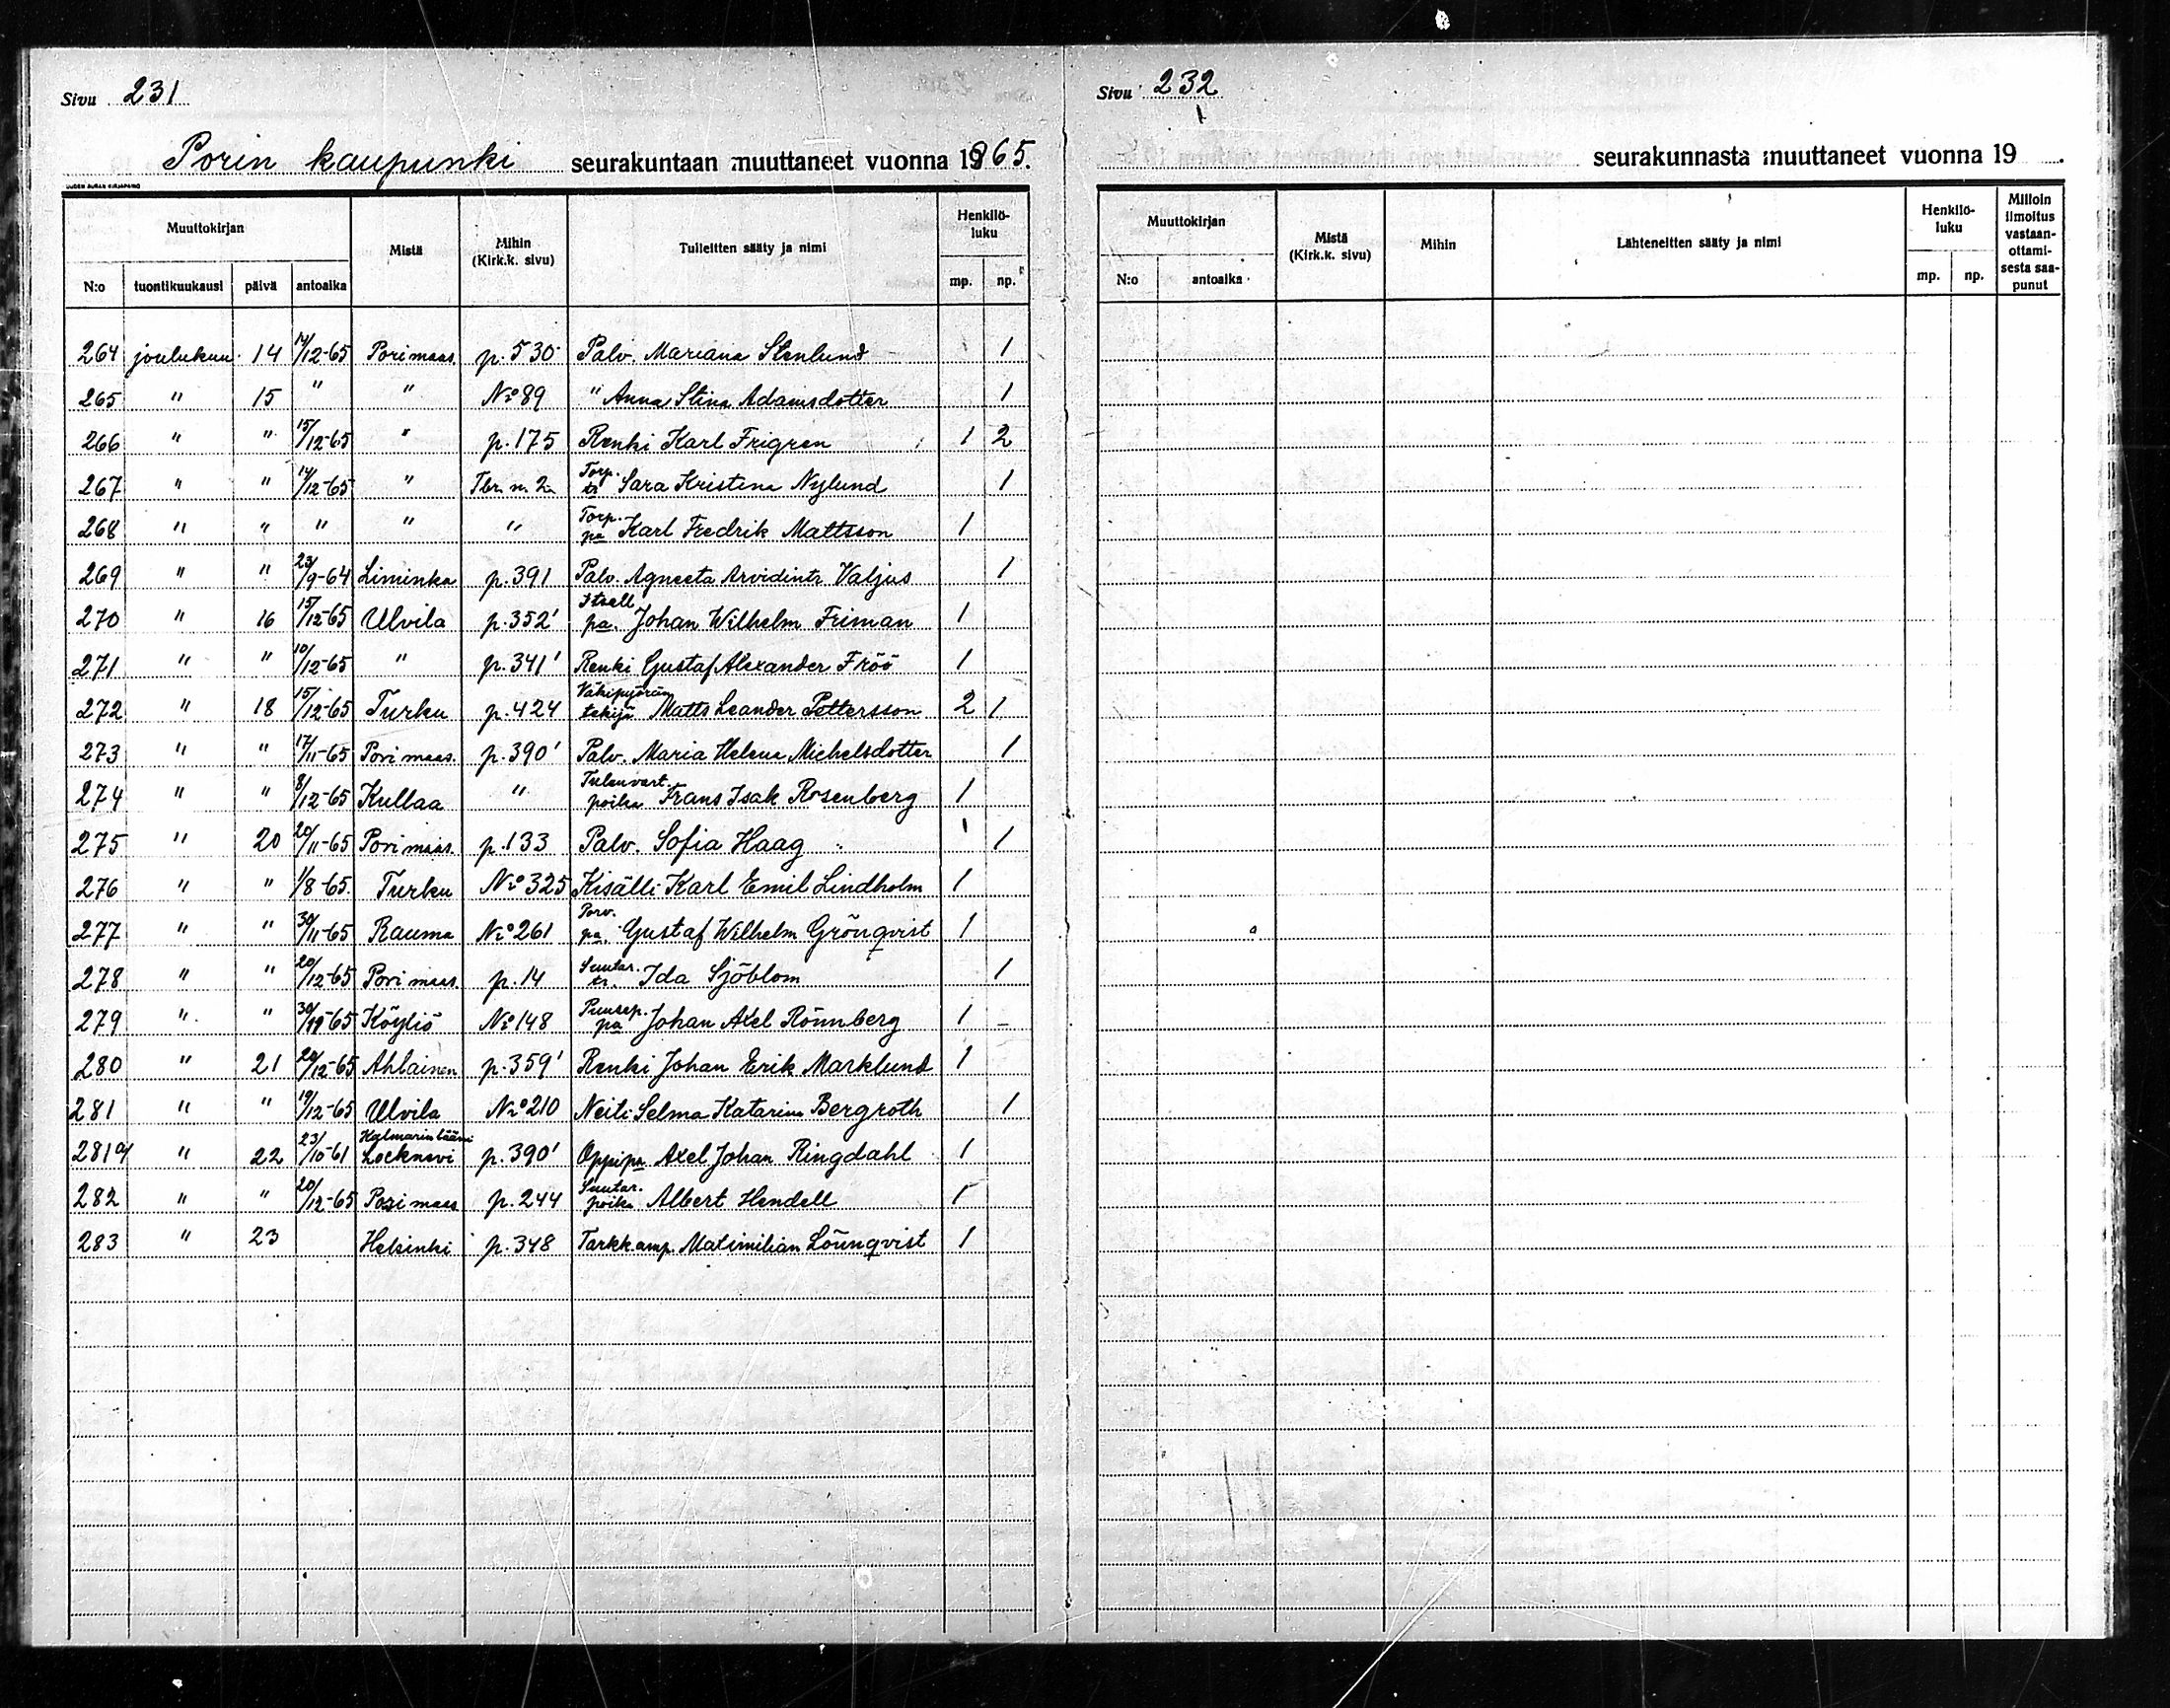 Sivu 231
Porin kaupunki seurakuntaan muuttaneet vuonna 1865.
UUDEN AURAN KIRJAPAINO
Muuttokirjan Mistä Mihin (Kirk.k. sivu) Tulleitten sääty ja nimi Henkilö-luku
N:o tuontikuukausi päivä antoaika mp. np.
264 joulukuu 14 14/12-65 Pori maas. p. 530 Palv. Mariana Stenlund 1
265 " 15 " " No 89 " Anna Stina Adamsdotter 1
266 " " 15/12-65 " p. 175 Renki Karl Frigren 1 2
267 " " 14/12-65 " Tbr. n. 2 Torp. tr Sara Kristina Nylund 1
268 " " " " " Torp. pa Karl Fredrik Mattsson 1
269 " " 23/9-64 Liminka p. 391 Palv. Agneeta Arvidintr Valjus 1
270 " 16 15/12-65 Ulvila p. 352' Itsell pa. Johan Wilhelm Friman 1
271 " " 10/12-65 " p. 341' Renki Gustaf Alexander Fröö 1
272 " 18 15/12-65 Turku p. 424 Väkipyörän tekijä Matts Leander Pettersson 2 1
273 " " 17/11-65 Pori maas. p. 390' Palv. Maria Helena Michelsdotter 1
274 " " 8/12-65 Kullaa " Tulenvart. poika Frans Isak Rosenberg 1
275 " 20 20/11-65 Pori maas. p. 133 Palv. Sofia Haag 1
276 " " 1/8-65. Turku No 325 Kisälli Karl Emil Lindholm 1
277 " " 30/11-65 Rauma No 261 Porv. pa. Gustaf Wilhelm Grönqvist 1
278 " " 20/12-65 Pori maas. p. 14 Suutar. tr. Ida Sjöblom 1
279 " " 30/11-65 Köyliö No 148 Puusep. pa Johan Axel Rönnberg 1 -
280 " 21 20/12-65 Ahlainen p. 359' Renki Johan Erik Marklund 1
281 " " 19/12-65 Ulvila No 210 Neiti Selma Katarina Bergroth 1
281a/ " 22 23/10-61 Kalmarin lääni Locknevi p. 390' Oppipa Axel Johan Ringdahl 1
282 " " 20/12-65 Pori maas p. 244 Suutar. poika Albert Hendell 1
283 " 23 Helsinki p. 348 Tarkk.amp. Maximilian Lönnqvist 1
Sivu 232
seurakunnasta muuttaneet vuonna 19 .
Muuttokirjan Mistä (Kirk.k. sivu) Mihin Lähteneitten sääty ja nimi Henkilö-luku Milloin ilmoitus vastaan-ottami-sesta saa-punut
N:o antoaika mp. np.